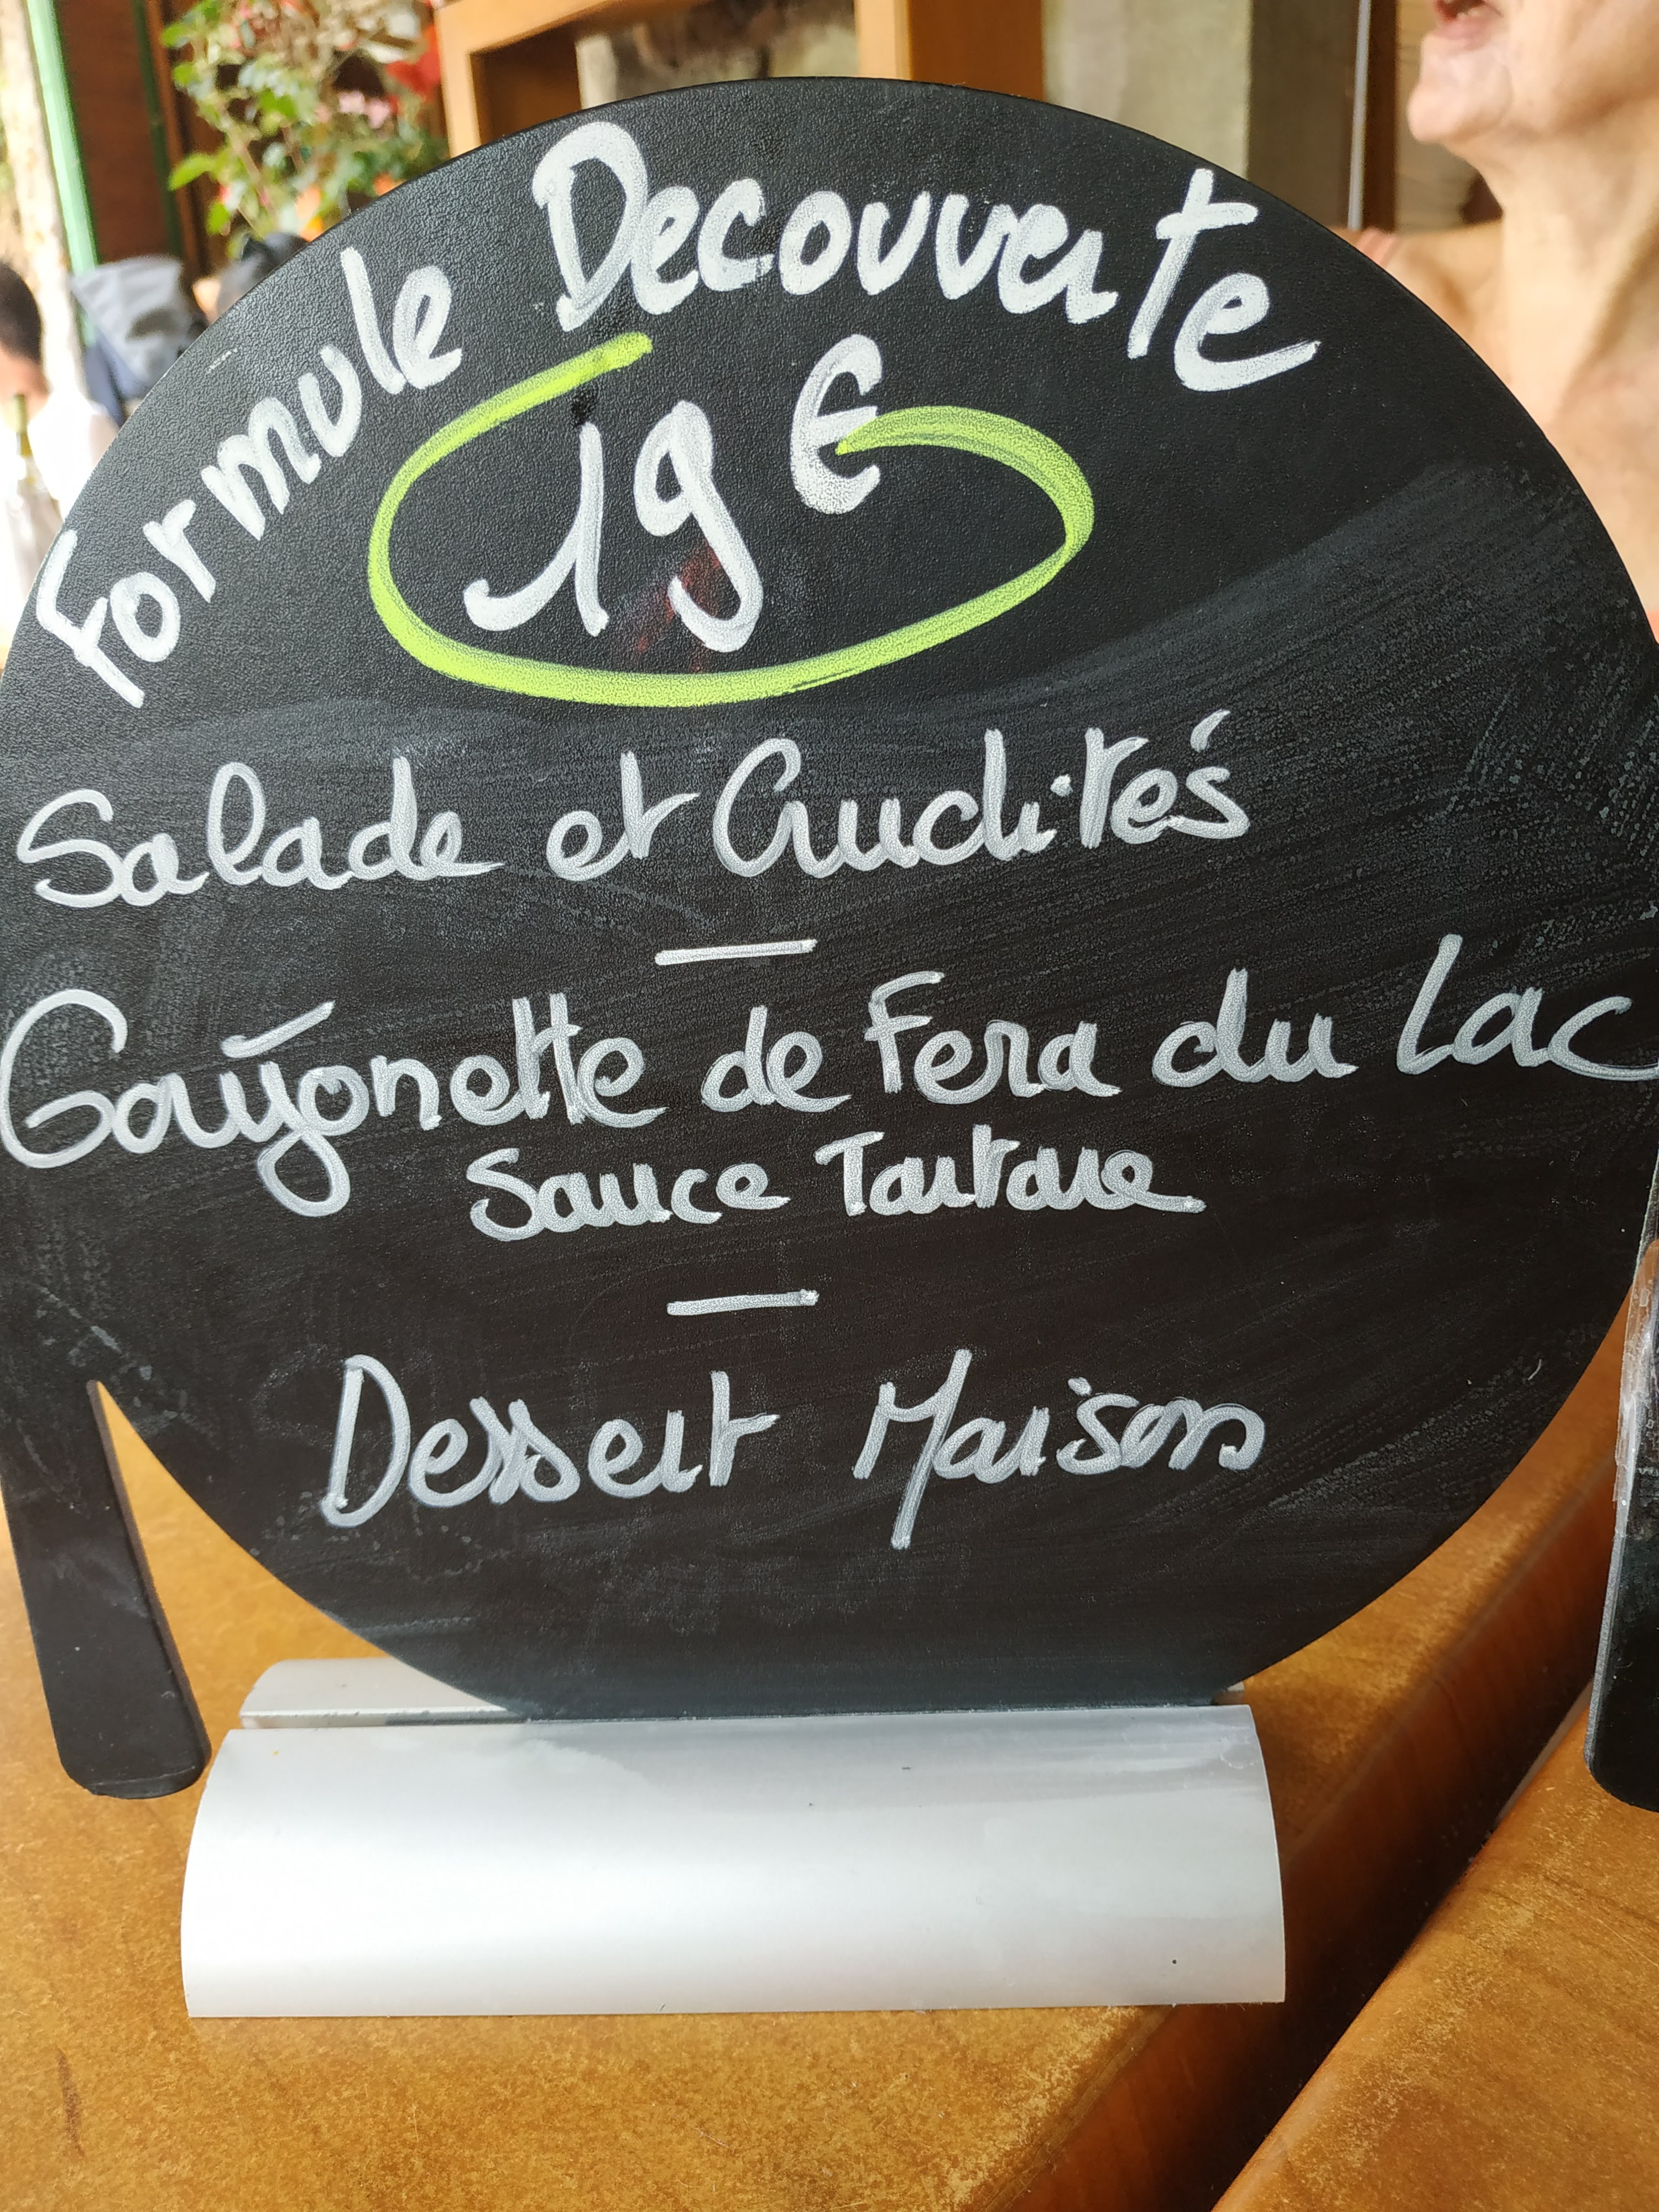 Formule Decouverte
19 €
Salade et Crudités
—
Goujonette de Fera du Lac
Sauce Tartare
—
Dessert Maison